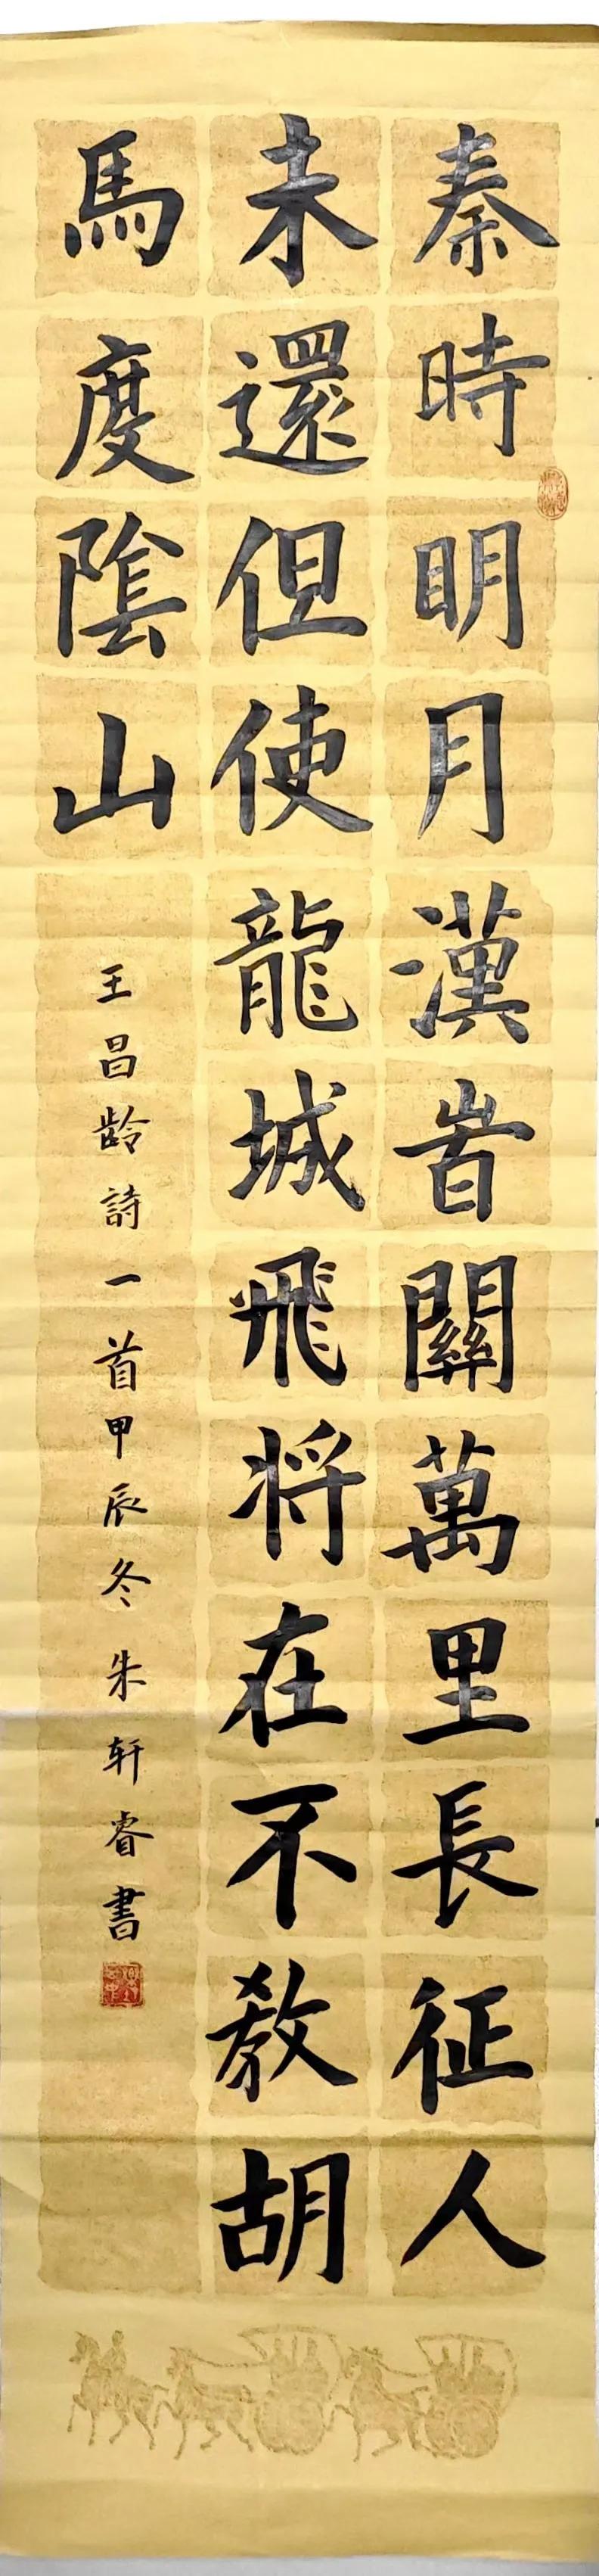 秦時明月漢旹關萬里長征人
未還但使龍城飛将在不敎胡
馬度隂山
王昌龄詩一首甲辰冬朱轩睿書